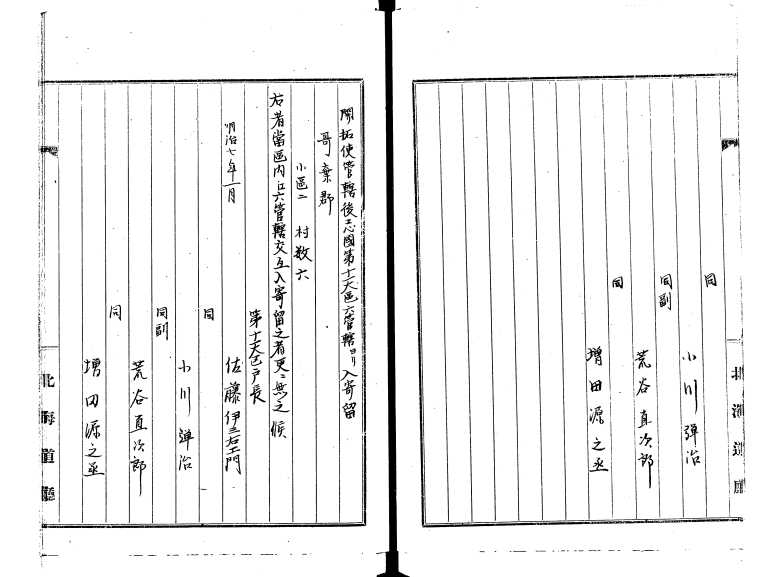 同
小川彈治
同副
荒谷直次郎
同
増田源之丞
北海道廳
開拓使管轄後志國第十一大區六管轄ヨリ入寄留
哥棄郡
小區二 村数六
右者當區内江六管轄交互入寄留之者更ニ無之候
第十一大區戸長
明治七年一月 佐藤伊三右エ門
同
小川彈治
同副
荒谷直次郎
同
増田源之丞
北海道廳